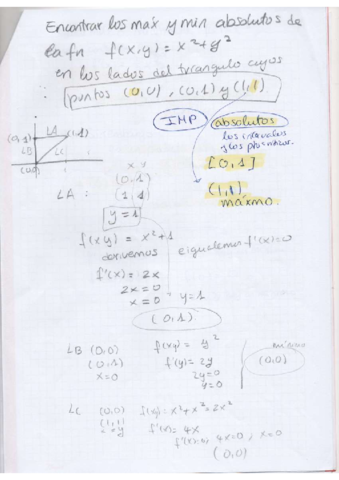 Encontrar los máx y min absolutos de
la fn f(x,y) = x²+y²
en los lados del triangulo cuyos
puntos (0,0), (0,1) y (1,1)
IMP absolutos
los intervalos
[0,1]
(0,1) LA (1,1)
LB LC
(0,0)
(1,1)
máximo.
LA: x y
(0,1)
(1,1)
y=1
f(xy) = x²+1
derivemos e igualemos f'(x)=0
f'(x) = 2x
2x=0
x=0 y=1
(0,1)
LB (0,0) f(xy) = y²
(0,1) f'(y) = 2y
x=0 2y=0
y=0
mínimo
(0,0)
LC (0,0) f(xy) = x²+x² = 2x²
(1,1) f'(x) = 4x
x=y f'(x)=0, 4x=0, x=0
(0,0)